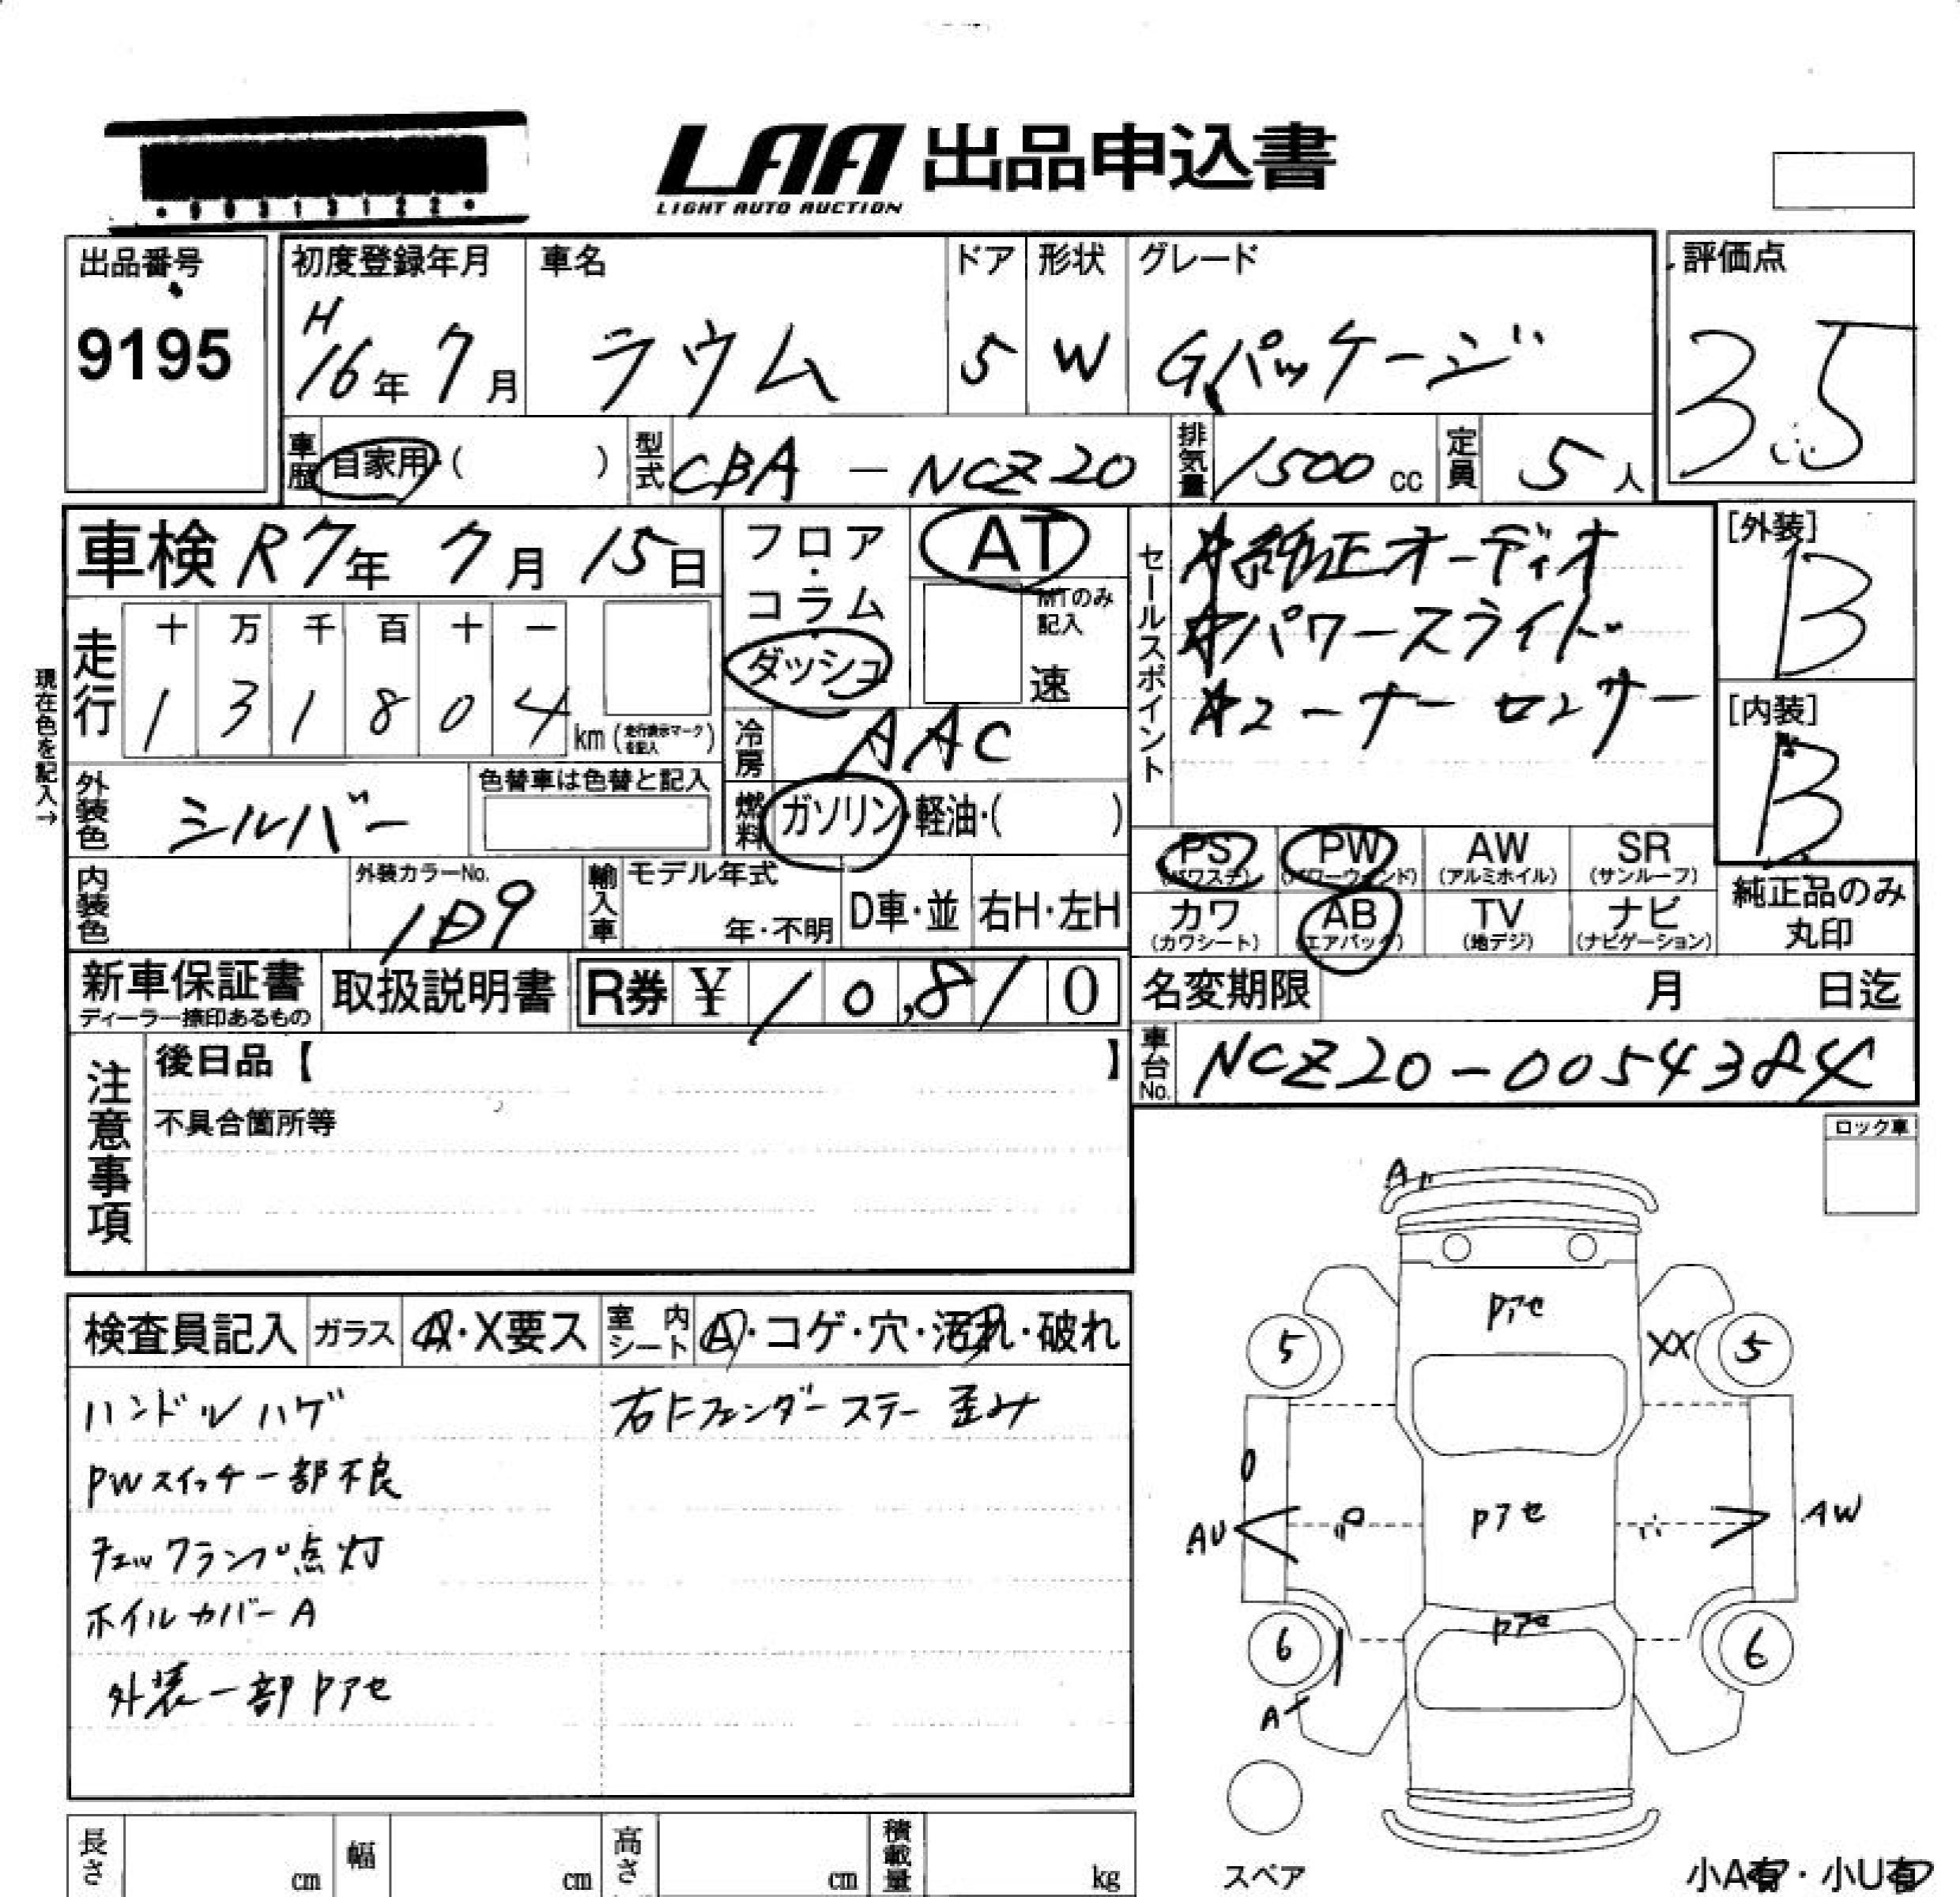 LAA 出品申込書
LIGHT AUTO AUCTION
出品番号
9195
初度登録年月
H
16年 7月
車名
ラウム
ドア
5
形状
W
グレード
Gパッケージ
評価点
3.5
車歴 自家用・( )
型式 CBA - NCZ20
排気量 1500 cc
定員 5 人
車検 R7年 7月 15日
走行
十 万 千 百 十 一
1 3 1 8 0 4 km (走行表示マークを記入)
現在色を記入→
フロア・コラム・ダッシュ
AT
MTのみ記入
速
冷房 AAC
燃料 ガソリン・軽油・( )
セールスポイント
☆純正オーディオ
☆パワースライド
☆コーナーセンサー
[外装]
B
[内装]
B
外装色 シルバー
色替車は色替と記入
内装色
外装カラーNo.
1D9
輸入車
モデル年式
年・不明
D車・並
右H・左H
PS (パワステ)
PW (パワーウィンド)
AW (アルミホイル)
SR (サンルーフ)
カワ (カワシート)
AB (エアバック)
TV (地デジ)
ナビ (ナビゲーション)
純正品のみ丸印
新車保証書
ディーラー捺印あるもの
取扱説明書
R券 ¥ 10,810
名変期限 月 日迄
車台No. NCZ20-0054384
注意事項
後日品【 】
不具合箇所等
ロック車
検査員記入
ガラス A・X要ス
室内シート A・コゲ・穴・汚れ・破れ
ハンドルハゲ
PWスイッチ一部不良
チェックランプ点灯
ホイルカバーA
外装一部Pアセ
右Fフェンダーステー歪み
A
Pアセ
5
XX
5
AU
P
Pアセ
AW
Pアセ
6
6
A
スペア
小A有・小U有
長さ cm
幅 cm
高さ cm
積載量 kg